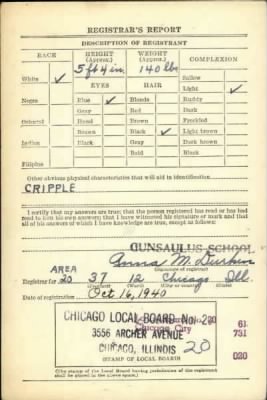 REGISTRAR'S REPORT
DESCRIPTION OF REGISTRANT
RACE HEIGHT (Approx.) WEIGHT (Approx.) COMPLEXION
5 ft 4 in. 140 lbs
White ✓ Sallow
EYES HAIR Light ✓
Negro Blue ✓ Blonde Ruddy
Gray Red Dark
Oriental Hazel Brown Freckled
Brown Black ✓ Light brown
Indian Black Gray Dark brown
Bald Black
Filipino
Other obvious physical characteristics that will aid in identification
CRIPPLE
I certify that my answers are true; that the person registered has read or has had
read to him his own answers; that I have witnessed his signature or mark and that
all of his answers of which I have knowledge are true, except as follows:
GUNSAULUS SCHOOL
Anna M. Durkin
(Signature of registrar)
AREA
Registrar for 20 37 12 Chicago Ill.
Date of registration Oct 16, 1940
CHICAGO LOCAL BOARD No. 20
Chicago City
3556 ARCHER AVENUE
CHICAGO, ILLINOIS
20
61
731
020
(STAMP OF LOCAL BOARD)
(The stamp of the Local Board having jurisdiction of the registrant
shall be placed in the above space.)